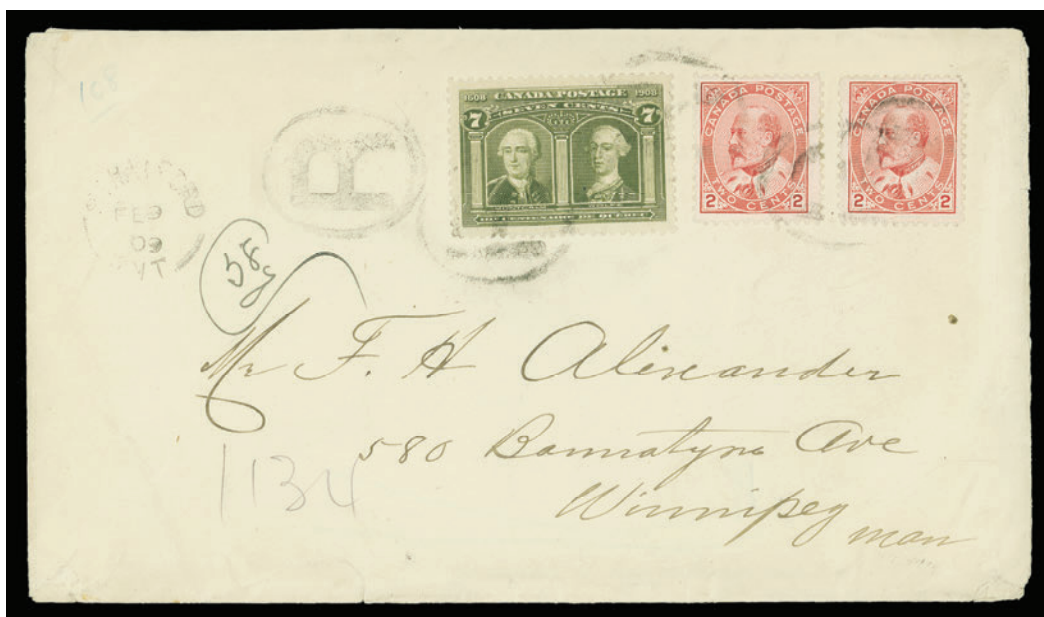 108
1608 CANADA POSTAGE 1908
SEVEN CENTS
7 7
IIIe CENTENAIRE DE QUÉBEC
CANADA POSTAGE
2 TWO CENTS 2
CANADA POSTAGE
2 TWO CENTS 2
R
FE 9
09
58
Mr F. H Alexander
580 Bannatyne Ave
Winnipeg
man
1134